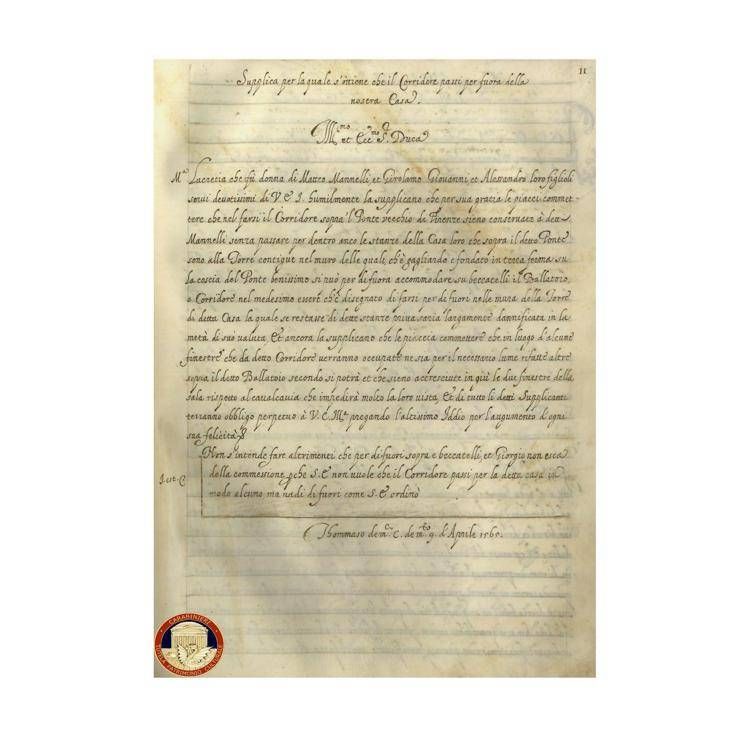 11
Supplica per la quale s'ottiene che il Corridore passi per fuora della
nostra Casa.
Ill.mo et Ecc.mo S. Duca
M.a Lucretia che fu donna di Matteo Mannelli, et Girolamo Giovanni, et Alessandro loro figlioli
servi devotissimi di V. E. I. humilmente la supplicano che per sua gratia le piacci commet-
tere che nel farsi il Corridore sopra 'l Ponte vecchio di Firenze sieno conservate à detti
Mannelli senza passare per dentro anco le stanze della Casa loro che sopra il detto Ponte
sono alla Torre contigue nel muro delle quali, ch'è gagliardo e fondato in tocca ferma su
la coscia del Ponte benissimo si può per di fuora accommodare su beccatelli il Ballatoio
o Corridore nel medesimo essere ch'è disegnato di farsi per di fuori nelle mura della Torre
di detta Casa la quale se restasse di dette stanze priva saria largamente dannificata in la
metà di suo valuta, Et ancora la supplicano che le piaccia commettere che in luogo d'alcune
finestre che da detto Corridore verranno occupate ne sia per il necessario lume rifatte altre
sopra il detto Ballatoio secondo si potrà et che sieno accresciute in giù le due finestre della
sala rispetto al cavalcavia che impedirà molto la loro vista, Et di tutto li detti Supplicanti
terranno obbligo perpetuo à V. E. Ill.ma pregando l'altissimo Iddio per l'augumento d'ogni
sua felicità
Non s'intende fare altrimenti che per di fuori sopra e beccatelli, et Giorgio non esca
della commessione perche S. E. non vuole che il Corridore passi per la detta casa in
modo alcuno ma vadi di fuori come S. E. ordinò
Thommaso de m. C. de m.to 9. d'Aprile 1565.
CARABINIERI
TUTELA PATRIMONIO CULTURALE